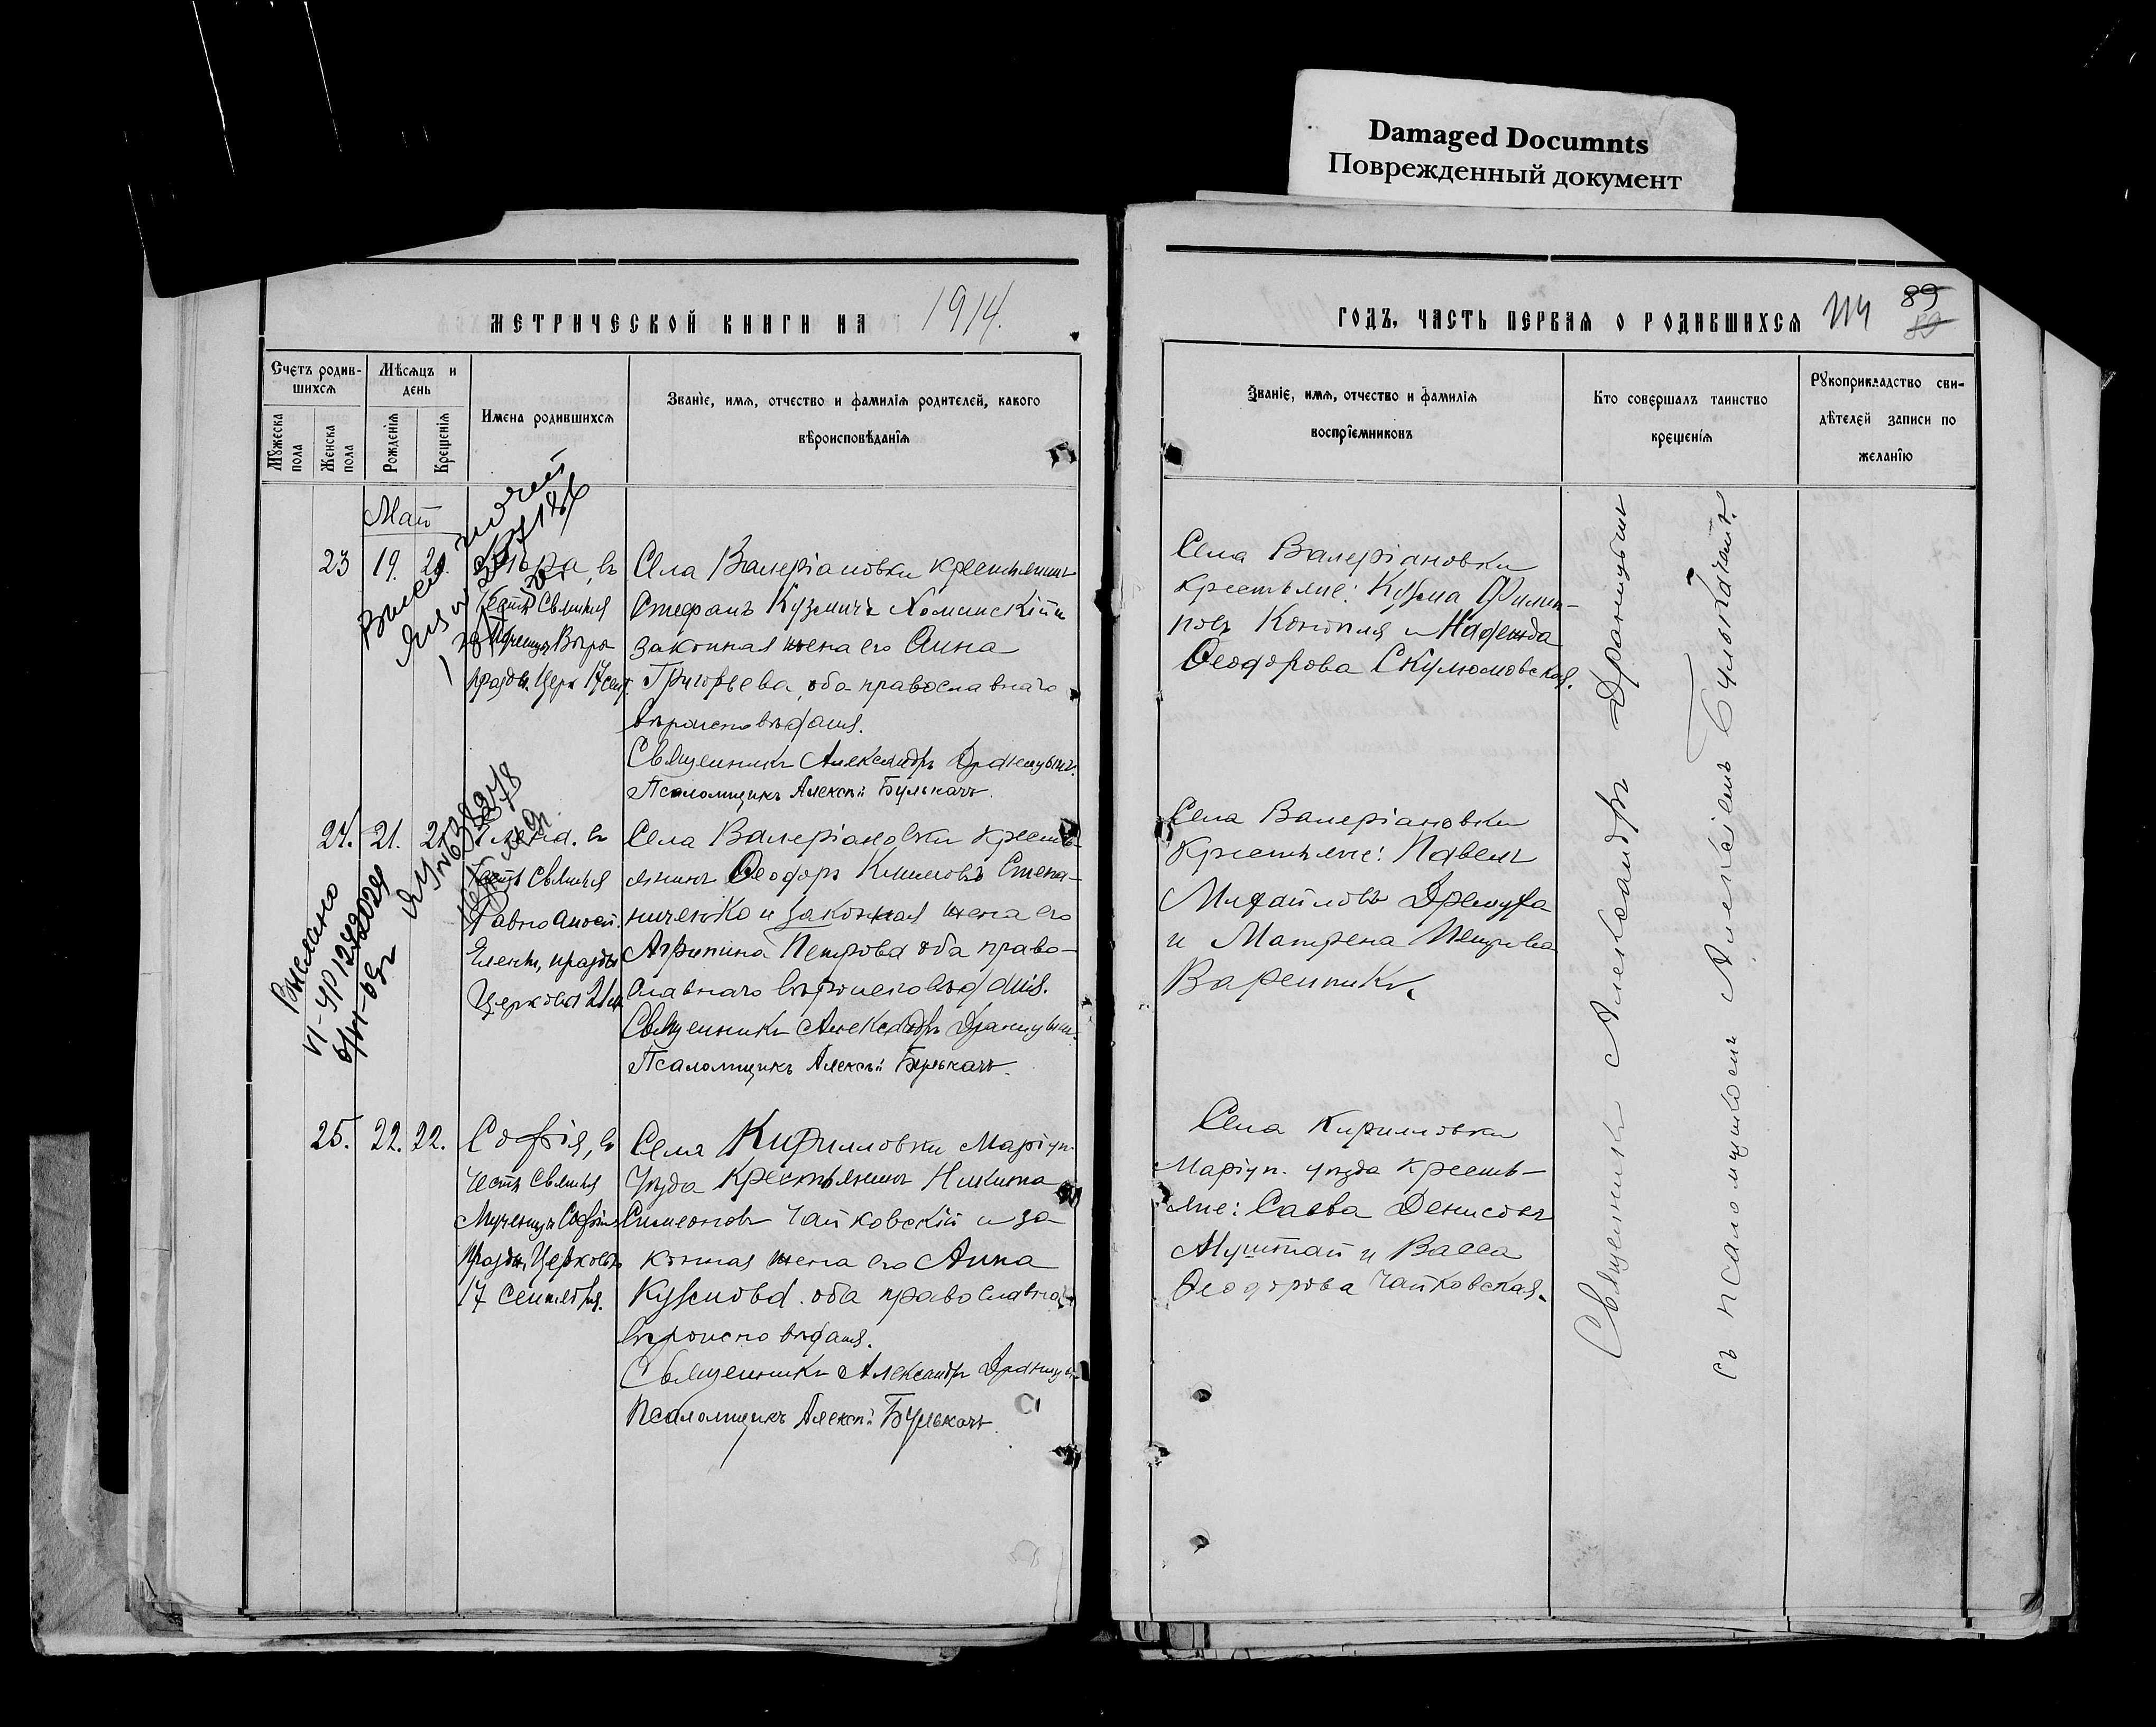 Damaged Documnts
Поврежденный документ
МЕТРИЧЕСКОЙ КНИГИ НА 1914.
ГОДЪ, ЧАСТЬ ПЕРВАЯ О РОДИВШИХСЯ 114 89
Счетъ родив-
шихся
Мужеска
пола
Женска
пола
Мѣсяцъ и
день
Рожденія
Крещенія
Имена родившихся
Званіе, имя, отчество и фамилія родителей, какого
вѣроисповѣданія
Званіе, имя, отчество и фамилія
воспріемниковъ
Кто совершалъ таинство
крещенія
Рукоприкладство сви-
дѣтелей записи по
желанію
Май
23 19.
Честь Святыя
Мученицы Вѣры
праздн. Церк 17 сент.
Села Валеріановки крестьянинъ
Стефанъ Кузмичъ Хоминскій и
законная жена его Анна
Григорьева, оба православнаго
вѣроисповѣданія.
Священникъ Александръ Драницынъ.
Псаломщикъ Алексѣй Булькачъ.
Села Валеріановки
крестьяне: Кузма Филип-
повъ Конопля и Надежда
Ѳеодорова Скулюмовская.
24. 21.
Честь Святыя
Равноапост.
Елены, праздн
Церковью 21 м
Села Валеріановки кресть-
янинъ Ѳеодоръ Климовъ Степа-
ниченко и законная жена его
Агрипина Петрова оба право-
славнаго вѣроисповѣданія.
Священникъ Александръ Драницынъ.
Псаломщикъ Алексѣй Булькачъ.
Села Валеріановки
Крестьяне: Павелъ
Михайловъ
и Матрена
Вареникъ.
Внесено
25. 22. 22.
Софія, въ
честь Святыя
Мученицы Софіи
праздн. Церковью
17 Сентября.
Села Кирилловки Маріуп.
Уѣзда Крестьянинъ Никита
Симеоновъ Чайковскій и за-
конная жена его Анна
Кузмова. оба православнаго
вѣроисповѣданія.
Священникъ Александръ Драницынъ
Псаломщикъ Алексѣй Булькачъ.
Села Кирилловки
Маріуп. уѣзда Кресть-
яне: Савва Денисовъ
Муштай и Васса
Ѳеодорова Чайковская.
Священникъ Александръ Драницынъ
съ псаломщикомъ Алексѣемъ Булькачемъ.